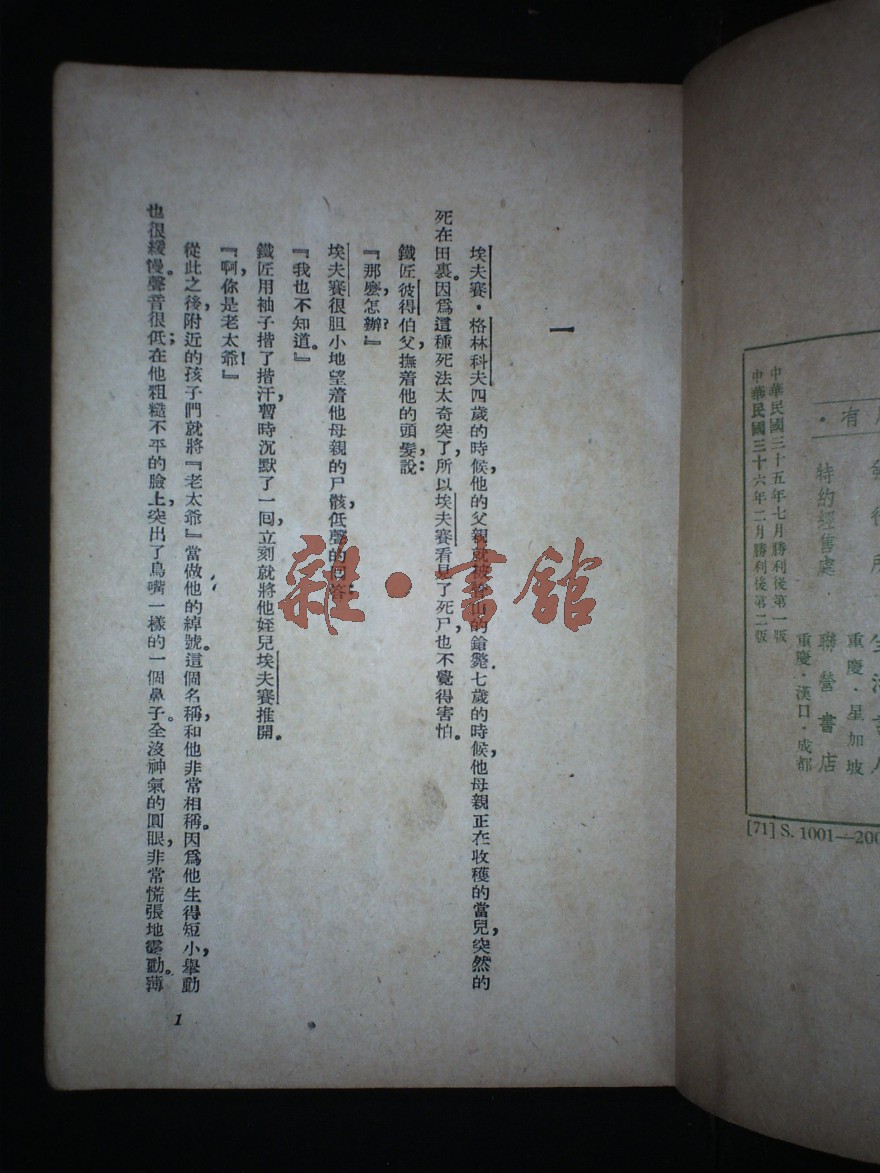 有・
重慶・星加坡
特約經售處 聯營書店
重慶・漢口・成都
中華民國三十五年七月勝利後第一版
中華民國三十六年二月勝利後第二版
[71] S. 1001—200
一
埃夫賽・格林科夫四歲的時候他的父親就被山的鎗斃七歲的時候，他母親正在收穫的當兒，突然的
死在田裏。因爲這種死法太奇突了，所以埃夫賽看見了死尸，也不覺得害怕。
鐵匠彼得伯父，撫着他的頭髮說：
『那麽，怎辦？』
埃夫賽很胆小地望着他母親的尸骸，低聲的回答：
『我也不知道。』
鐵匠用袖子揩了揩汗，暫時沉默了一回，立刻就將他姪兒埃夫賽推開。
『啊，你是老太爺！』
從此之後，附近的孩子們就將『老太爺』當做他的綽號。這個名稱，和他非常相稱。因爲他生得短小，舉動
也很緩慢。聲音很低；在他粗糙不平的臉上，突出了鳥嘴一樣的一個鼻子。全沒神氣的圓眼，非常慌張地霎動。薄
1
雜・書館